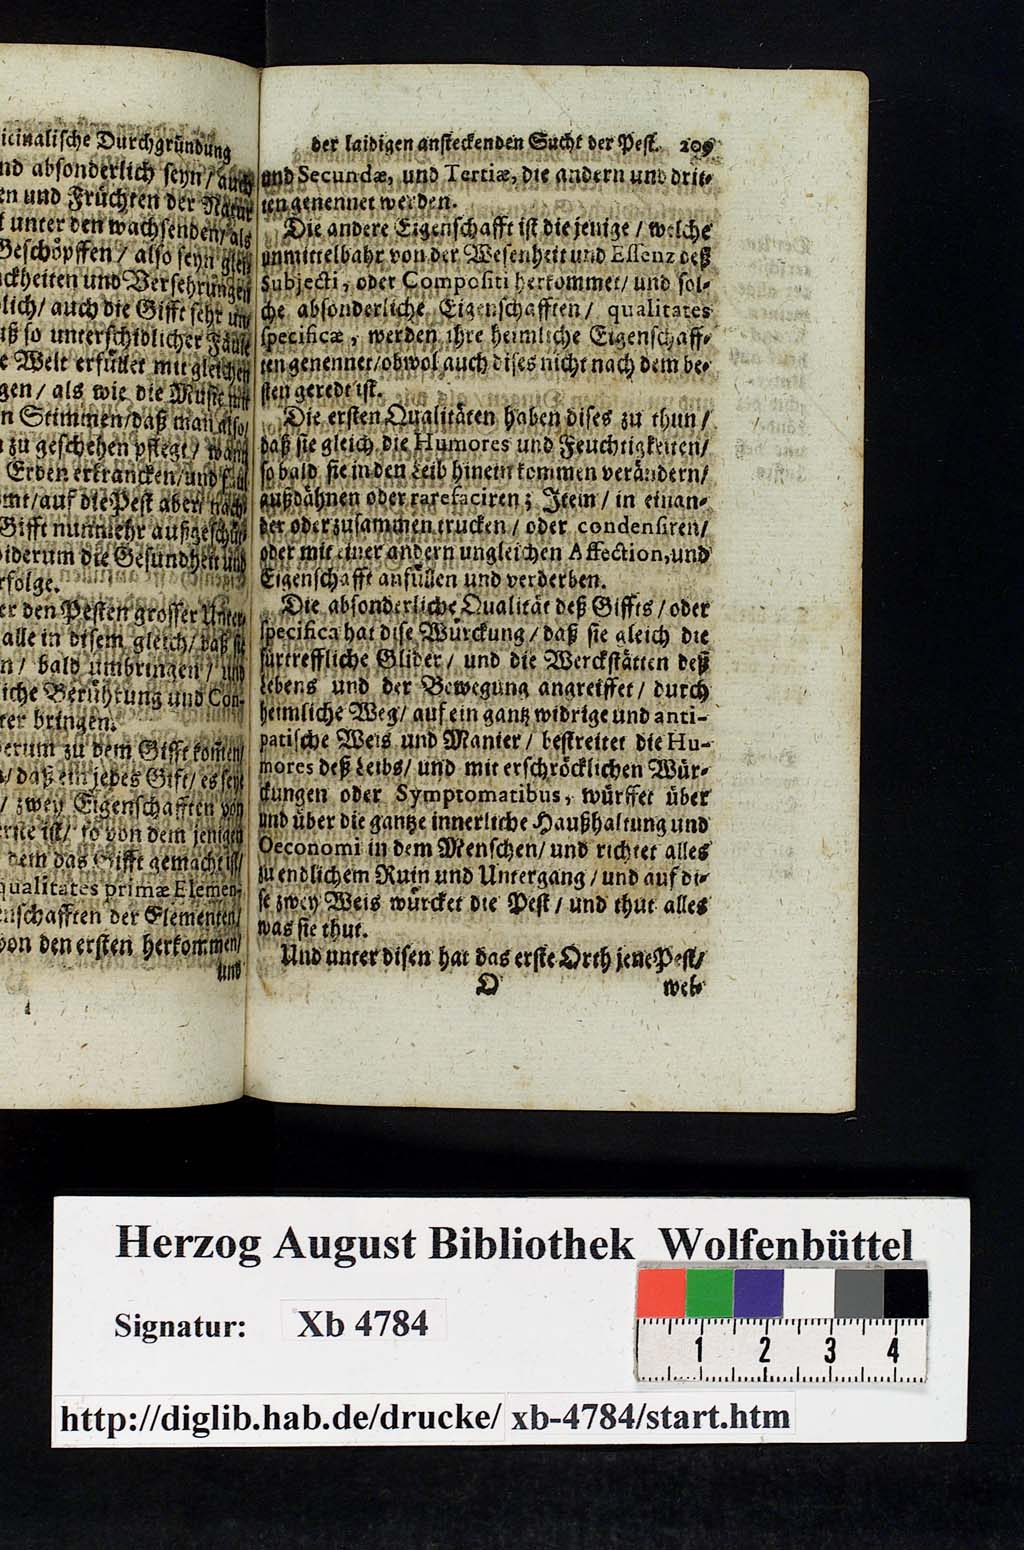 icinalische Durchgründung
nd absonderlich seyn/ auch
en und Früchten der Natur
t unter den wachsenden/ als
Geschöpffen/ also seyn
ckheiten und Versehrungen
lich/ auch die Gifft sehr und
aß so unterschidlicher Fäule
e Welt erfüllet mit gleichen
gen/ als wie die
n Stimmen/ daß man also/
n zu geschehen pflegt/ wann
Erden erkrancken/ und
mt/ auf die Pest aber/ nach
Gifft nunmehr außgeschüt
iderum die Gesundheit und
rfolge.
er den Pesten grosser Unter-
alle in disem gleich/ daß sie
n/ bald umbringen/ und
iche Berührung und Con-
ter bringen.
erum zu dem Gifft kom̃en/
/ daß ein jedes Gift/ es seye
/ zwey Eigenschafften von
erste ist/ so von dem jenigen
dem das Gifft gemacht ist/
qualitates primæ Elemen-
enschafften der Elementen/
von den ersten herkommen/
und
der laidigen ansteckenden Sucht der Pest. 209
und Secundæ, und Tertiæ, die andern und drit-
ten genennet werden.
Die andere Eigenschafft ist die jenige / welche
unmittelbahr von der Wesenheit und Essenz deß
Subjecti, oder Compositi herkommet/ und sol-
che absonderliche Eigenschafften / qualitates
specificæ, werden ihre heimliche Eigenschaff-
ten genennet/ obwol auch dises nicht nach dem be-
sten geredt ist.
Die ersten Qualitäten haben dises zu thun /
daß sie gleich die Humores und Feuchtigkeiten/
so bald sie in den Leib hinein kommen verändern/
außdähnen oder rarefaciren; Item / in einan-
der oder zusammen trucken / oder condensiren/
oder mit einer andern ungleichen Affection, und
Eigenschafft anfüllen und verderben.
Die absonderliche Qualität deß Giffts / oder
specifica hat dise Würckung / daß sie gleich die
fürtreffliche Glider / und die Werckstätten deß
Lebens und der Bewegung angreiffet / durch
heimliche Weg / auf ein gantz widrige und anti-
patische Weis und Manier / bestreitet die Hu-
mores deß Leibs/ und mit erschröcklichen Wür-
ckungen oder Symptomatibus, würffet über
und über die gantze innerliche Haußhaltung und
Oeconomi in dem Menschen/ und richtet alles
zu endlichem Ruin und Untergang / und auf di-
se zwey Weis würcket die Pest / und thut alles
was sie thut.
Und unter disen hat das erste Orth jene Pest/
O wel-
Herzog August Bibliothek Wolfenbüttel
Signatur: Xb 4784
1 2 3 4
http://diglib.hab.de/drucke/ xb-4784/start.htm